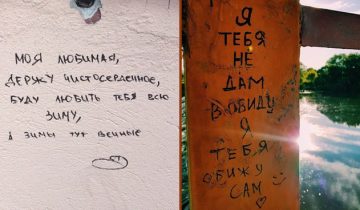 МОЯ ЛЮБИМАЯ,
ДЕРЖУ ЧИСТОСЕРДЕЧНОЕ,
БУДУ ЛЮБИТЬ ТЕБЯ ВСЮ
ЗИМУ,
А ЗИМЫ ТУТ ВЕЧНЫЕ
Я
ТЕБЯ
НЕ
ДАМ
В ОБИДУ
Я
ТЕБЯ
ОБИЖУ
САМ